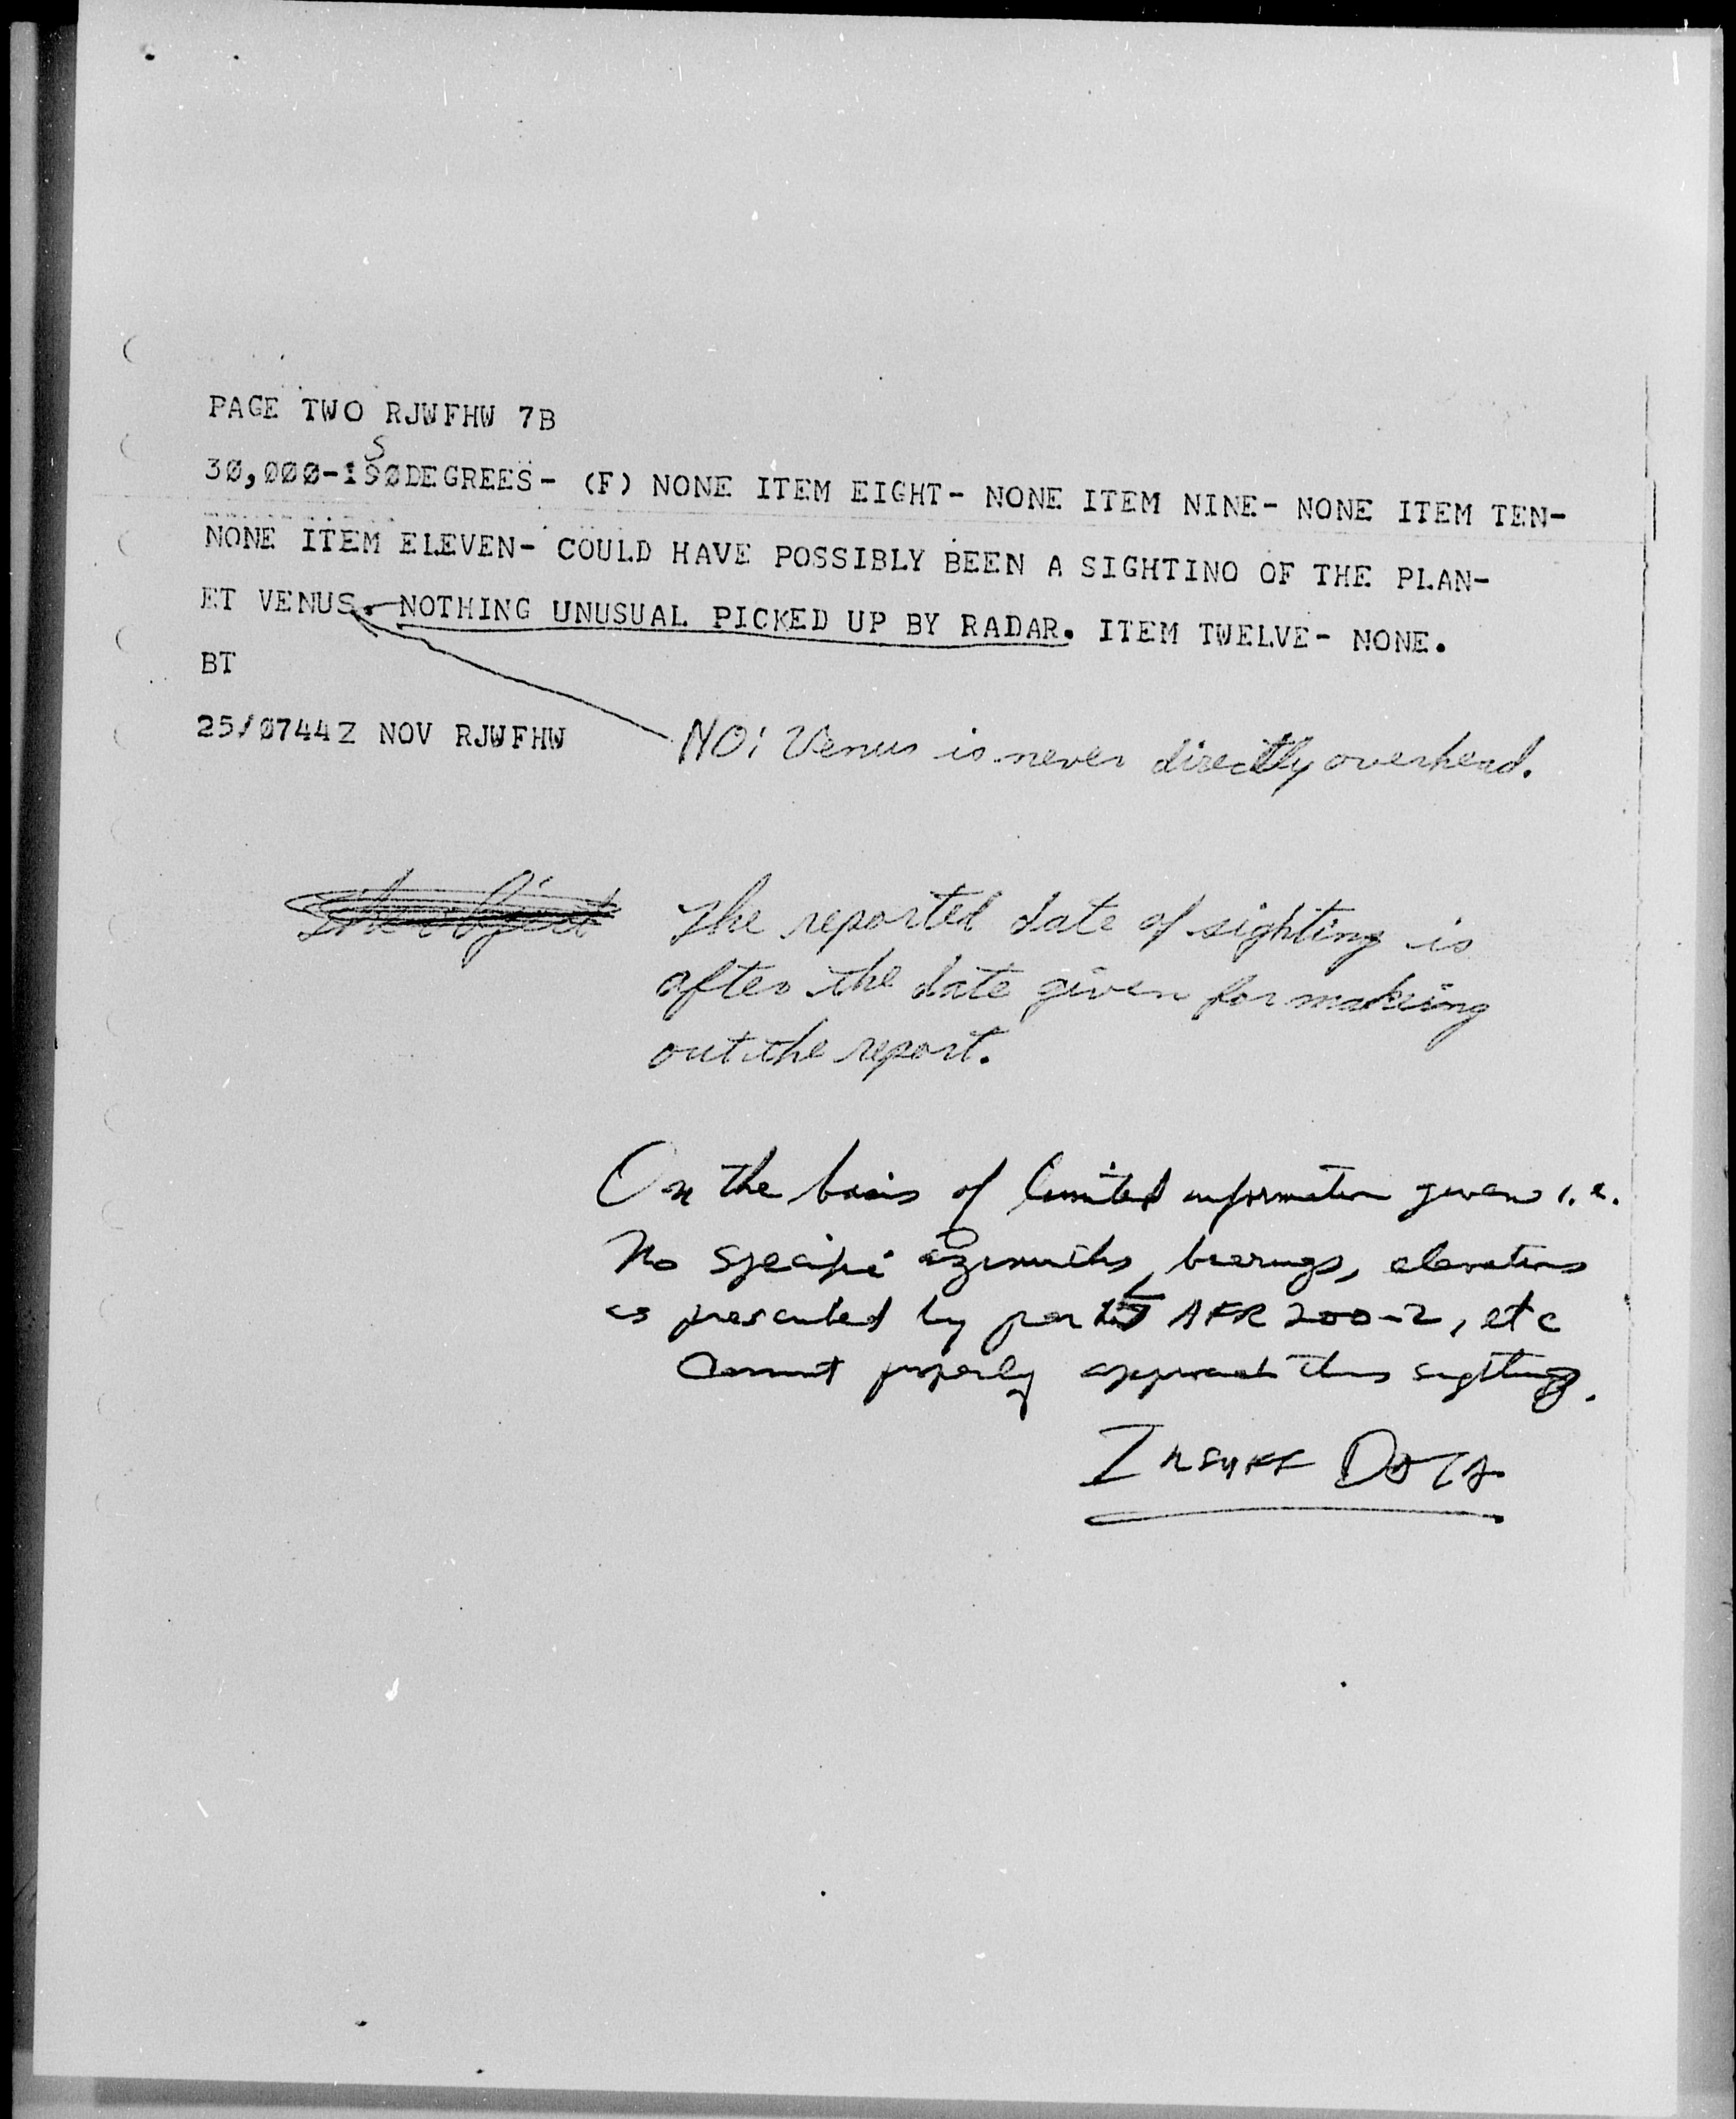 PAGE TWO RJWFHW 7B
30,000-190DEGREES- (F) NONE ITEM EIGHT- NONE ITEM NINE- NONE ITEM TEN-
NONE ITEM ELEVEN- COULD HAVE POSSIBLY BEEN A SIGHTINO OF THE PLAN-
ET VENUS. NOTHING UNUSUAL PICKED UP BY RADAR. ITEM TWELVE- NONE.
BT
25/0744Z NOV RJWFHW
NO! Venus is never directly overhead.
The object The reported date of sighting is
after the date given for making
out the report.
On the basis of limited information given i.e.
No specific azimuths, bearings, elevations
as presented by par AFR 200-2, etc
Cannot properly approach this sighting.
INSUFF DATA